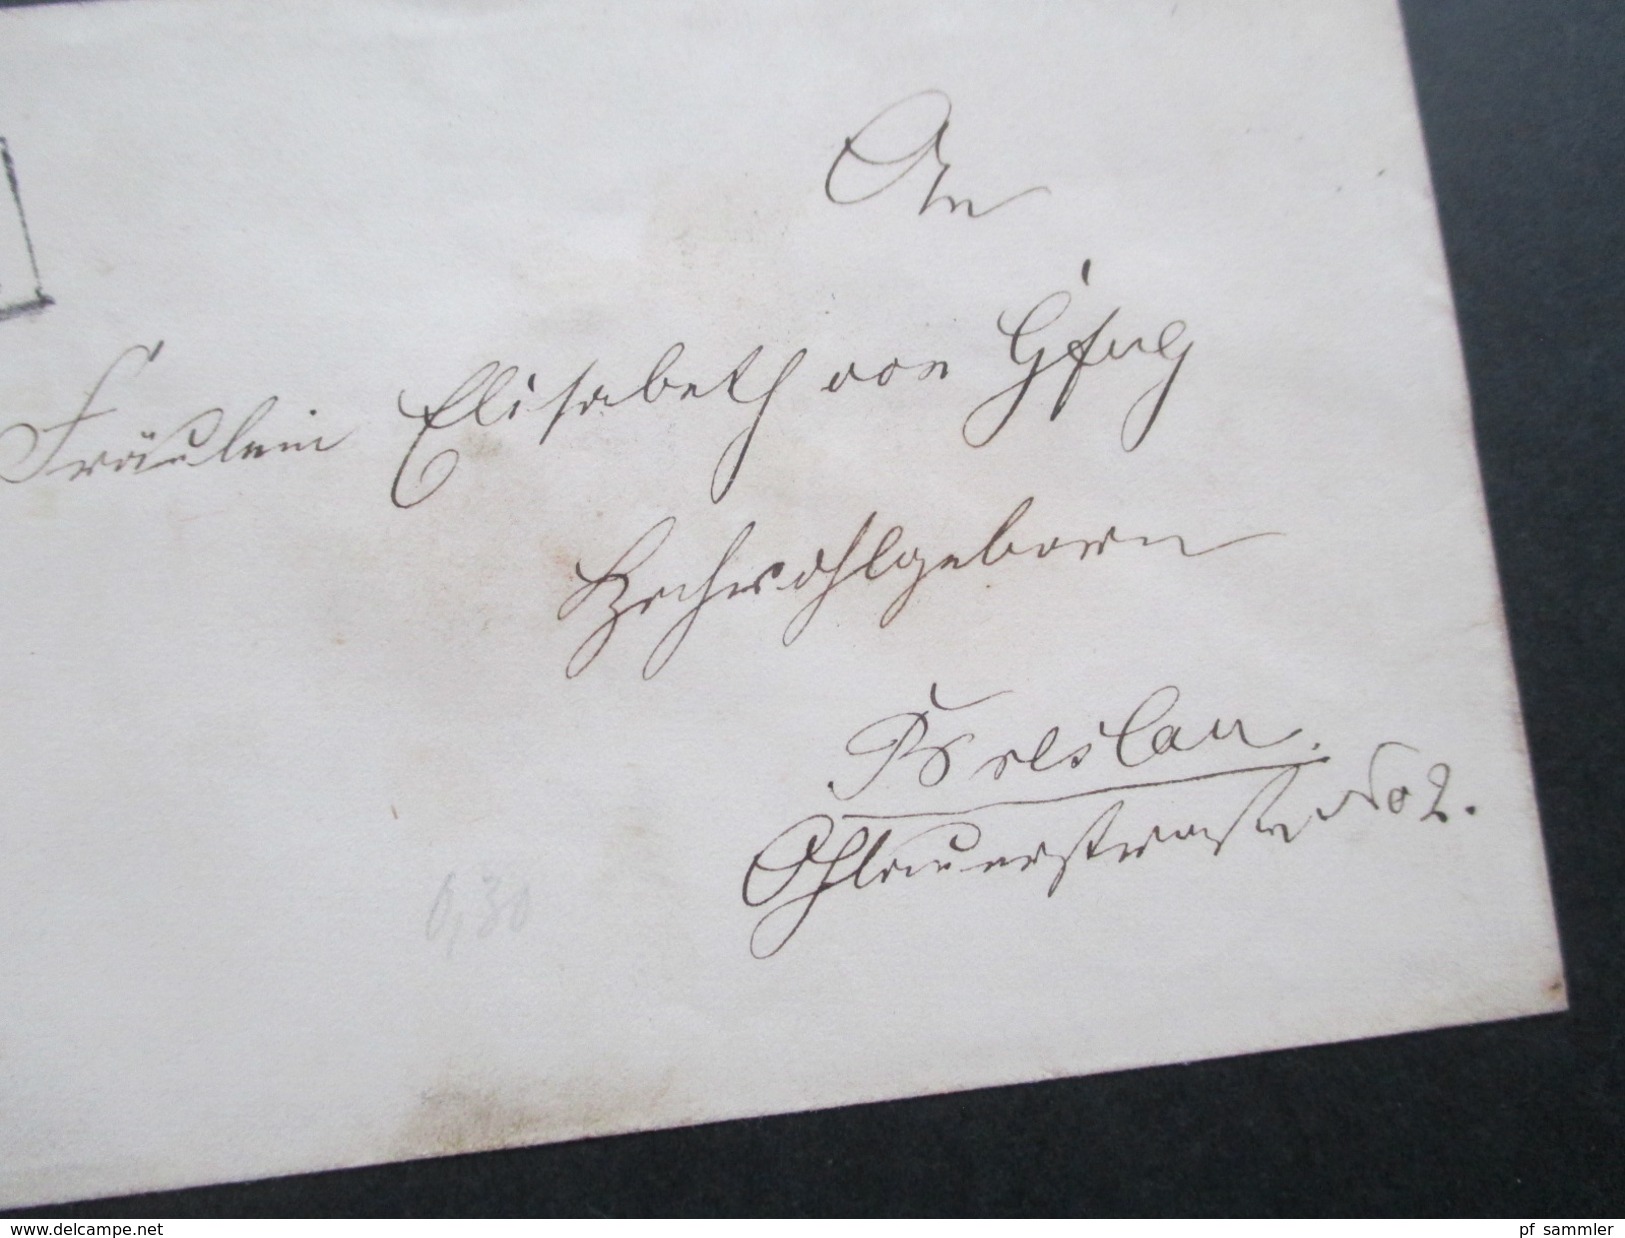 An
Fräulein Elisabeth von Gfug
Hochwohlgeboren
Breslau.
Ohlauerstrasse No 2.
0,30
www.delcampe.net
pf_sammler